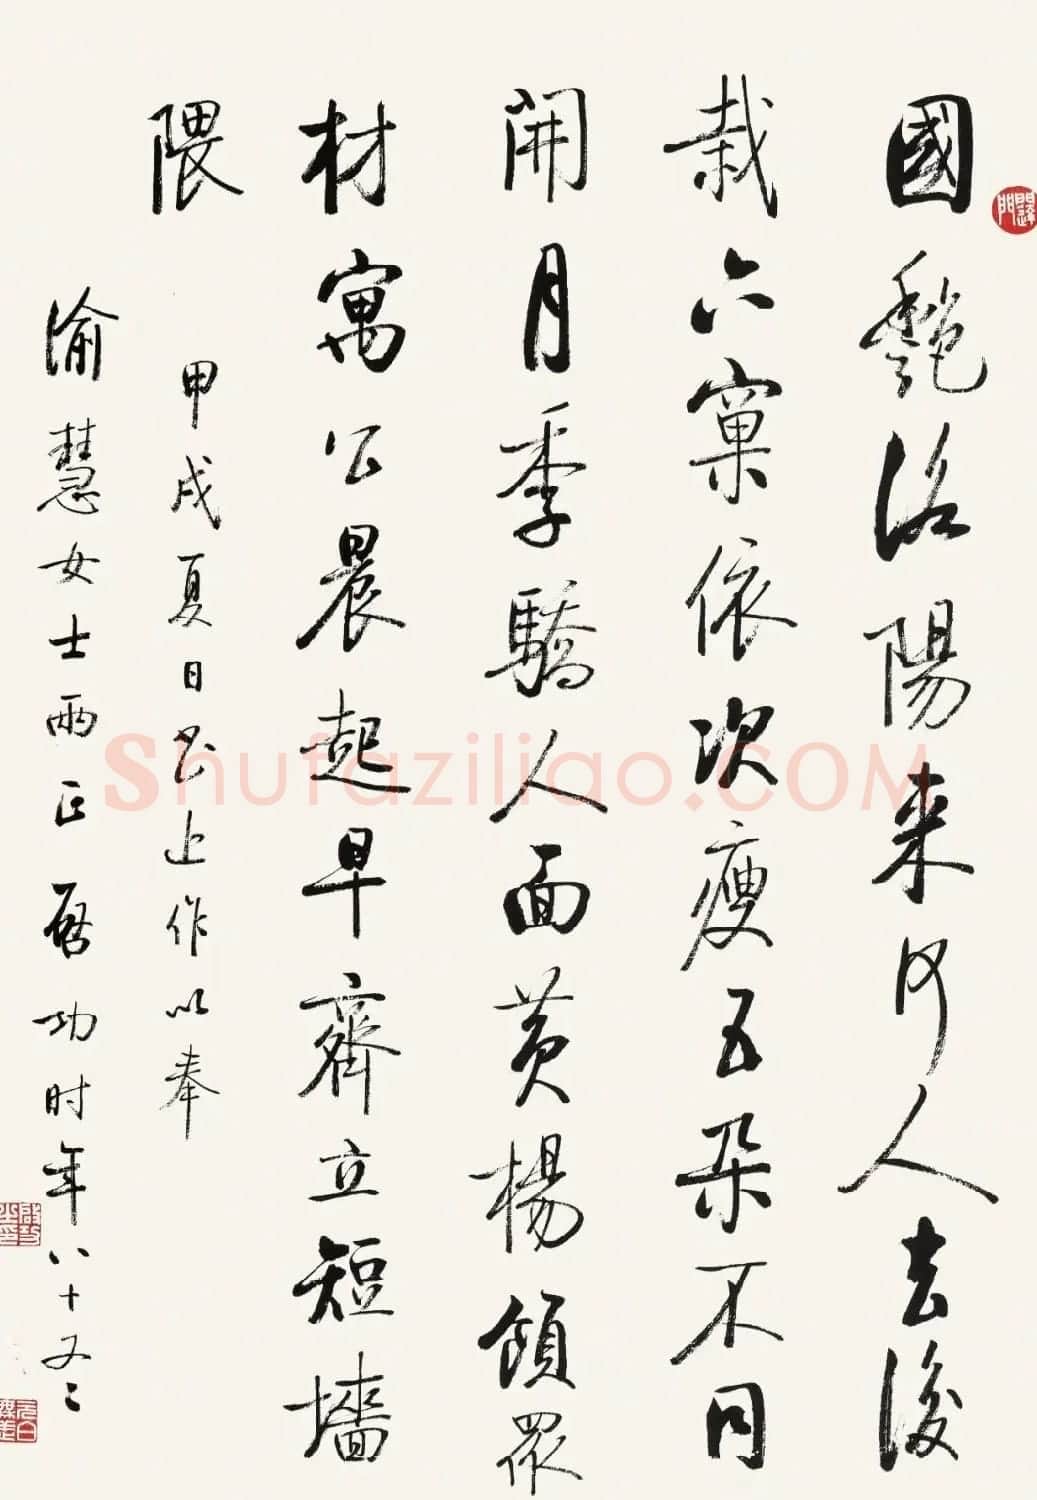 國艷洛陽来何人去後
栽六窠依次瘦五朵不同
開月季驕人面黃楊領眾
材寓公晨起早齊立短墻
隈
甲戌夏日书上作以奉
渝慧女士兩正 啓功时年八十又二
Shufaziliao.COM